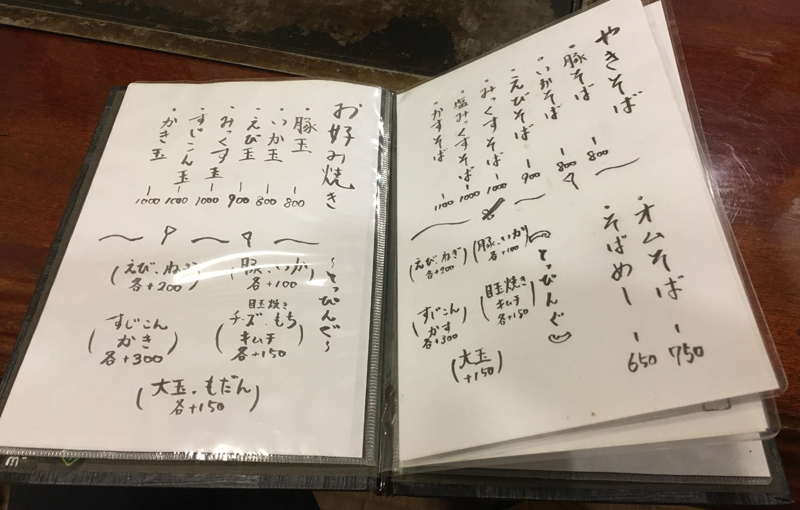 やきそば
・豚そば ー 800
・いかそば ー 800
・えびそば ー 900
・みっくすそば ー 1000
・塩みっくすそば ー 1000
・かすそば ー 1100
〜とっぴんぐ〜
(豚、いか
各+100)
(えび、ねぎ
各+200)
(目玉焼き
キムチ
各+150)
(すじこん
かす
各+300)
(大玉
+150)
・オムそば ー 750
・そばめし ー 650
お好み焼き
・豚玉 ー 800
・いか玉 ー 800
・えび玉 ー 900
・みっくす玉 ー 1000
・すじこん玉 ー 1000
・かき玉 ー 1000
〜とっぴんぐ〜
(豚、いか
各+100)
(えび、ねぎ
各+200)
(目玉焼き
チーズ・もち
キムチ
各+150)
(すじこん
かき
各+300)
(大玉・もだん
各+150)